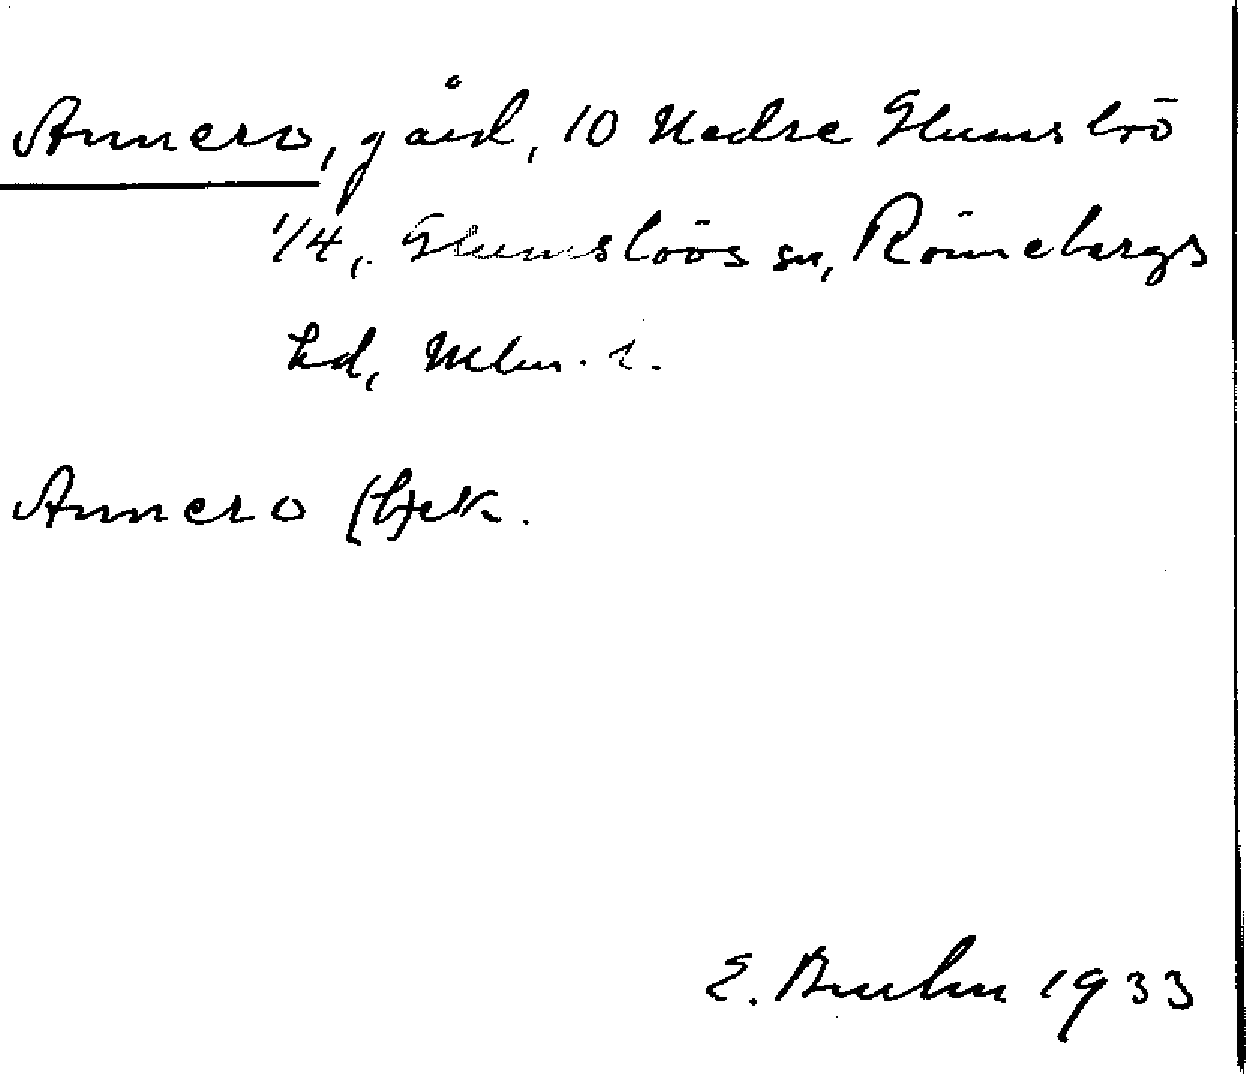 Annero, gård, 10 Nedre Glumslöv
1/4, Glumslövs sn, Rönnebergs
hd, Mlm. l.
Annero (h)ek.
E. Bruhn 1933